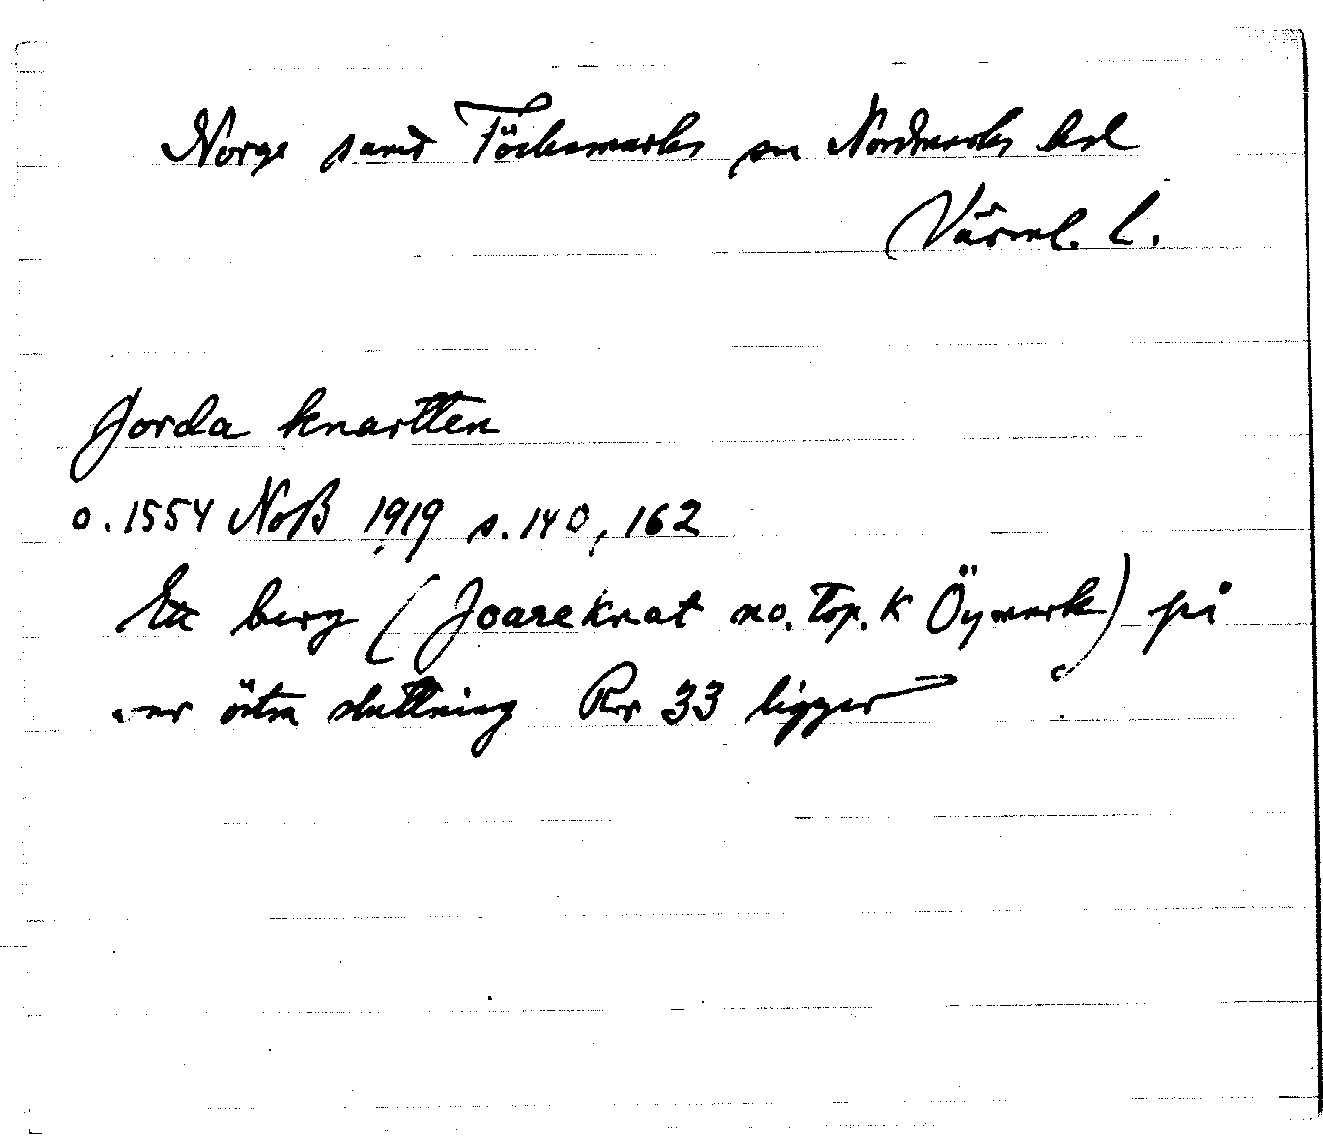 Norge samt Töcksmarks sn Nordmarks hd
Värml. l.
Jorda knartten
o. 1554 NoB 1919 s. 140, 162
Ett berg (Joareknat no. Top. K Öymark) på
östra sluttning Rr 33 ligger